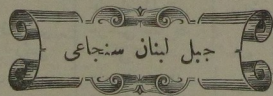 جبل لبنان سنجاعی